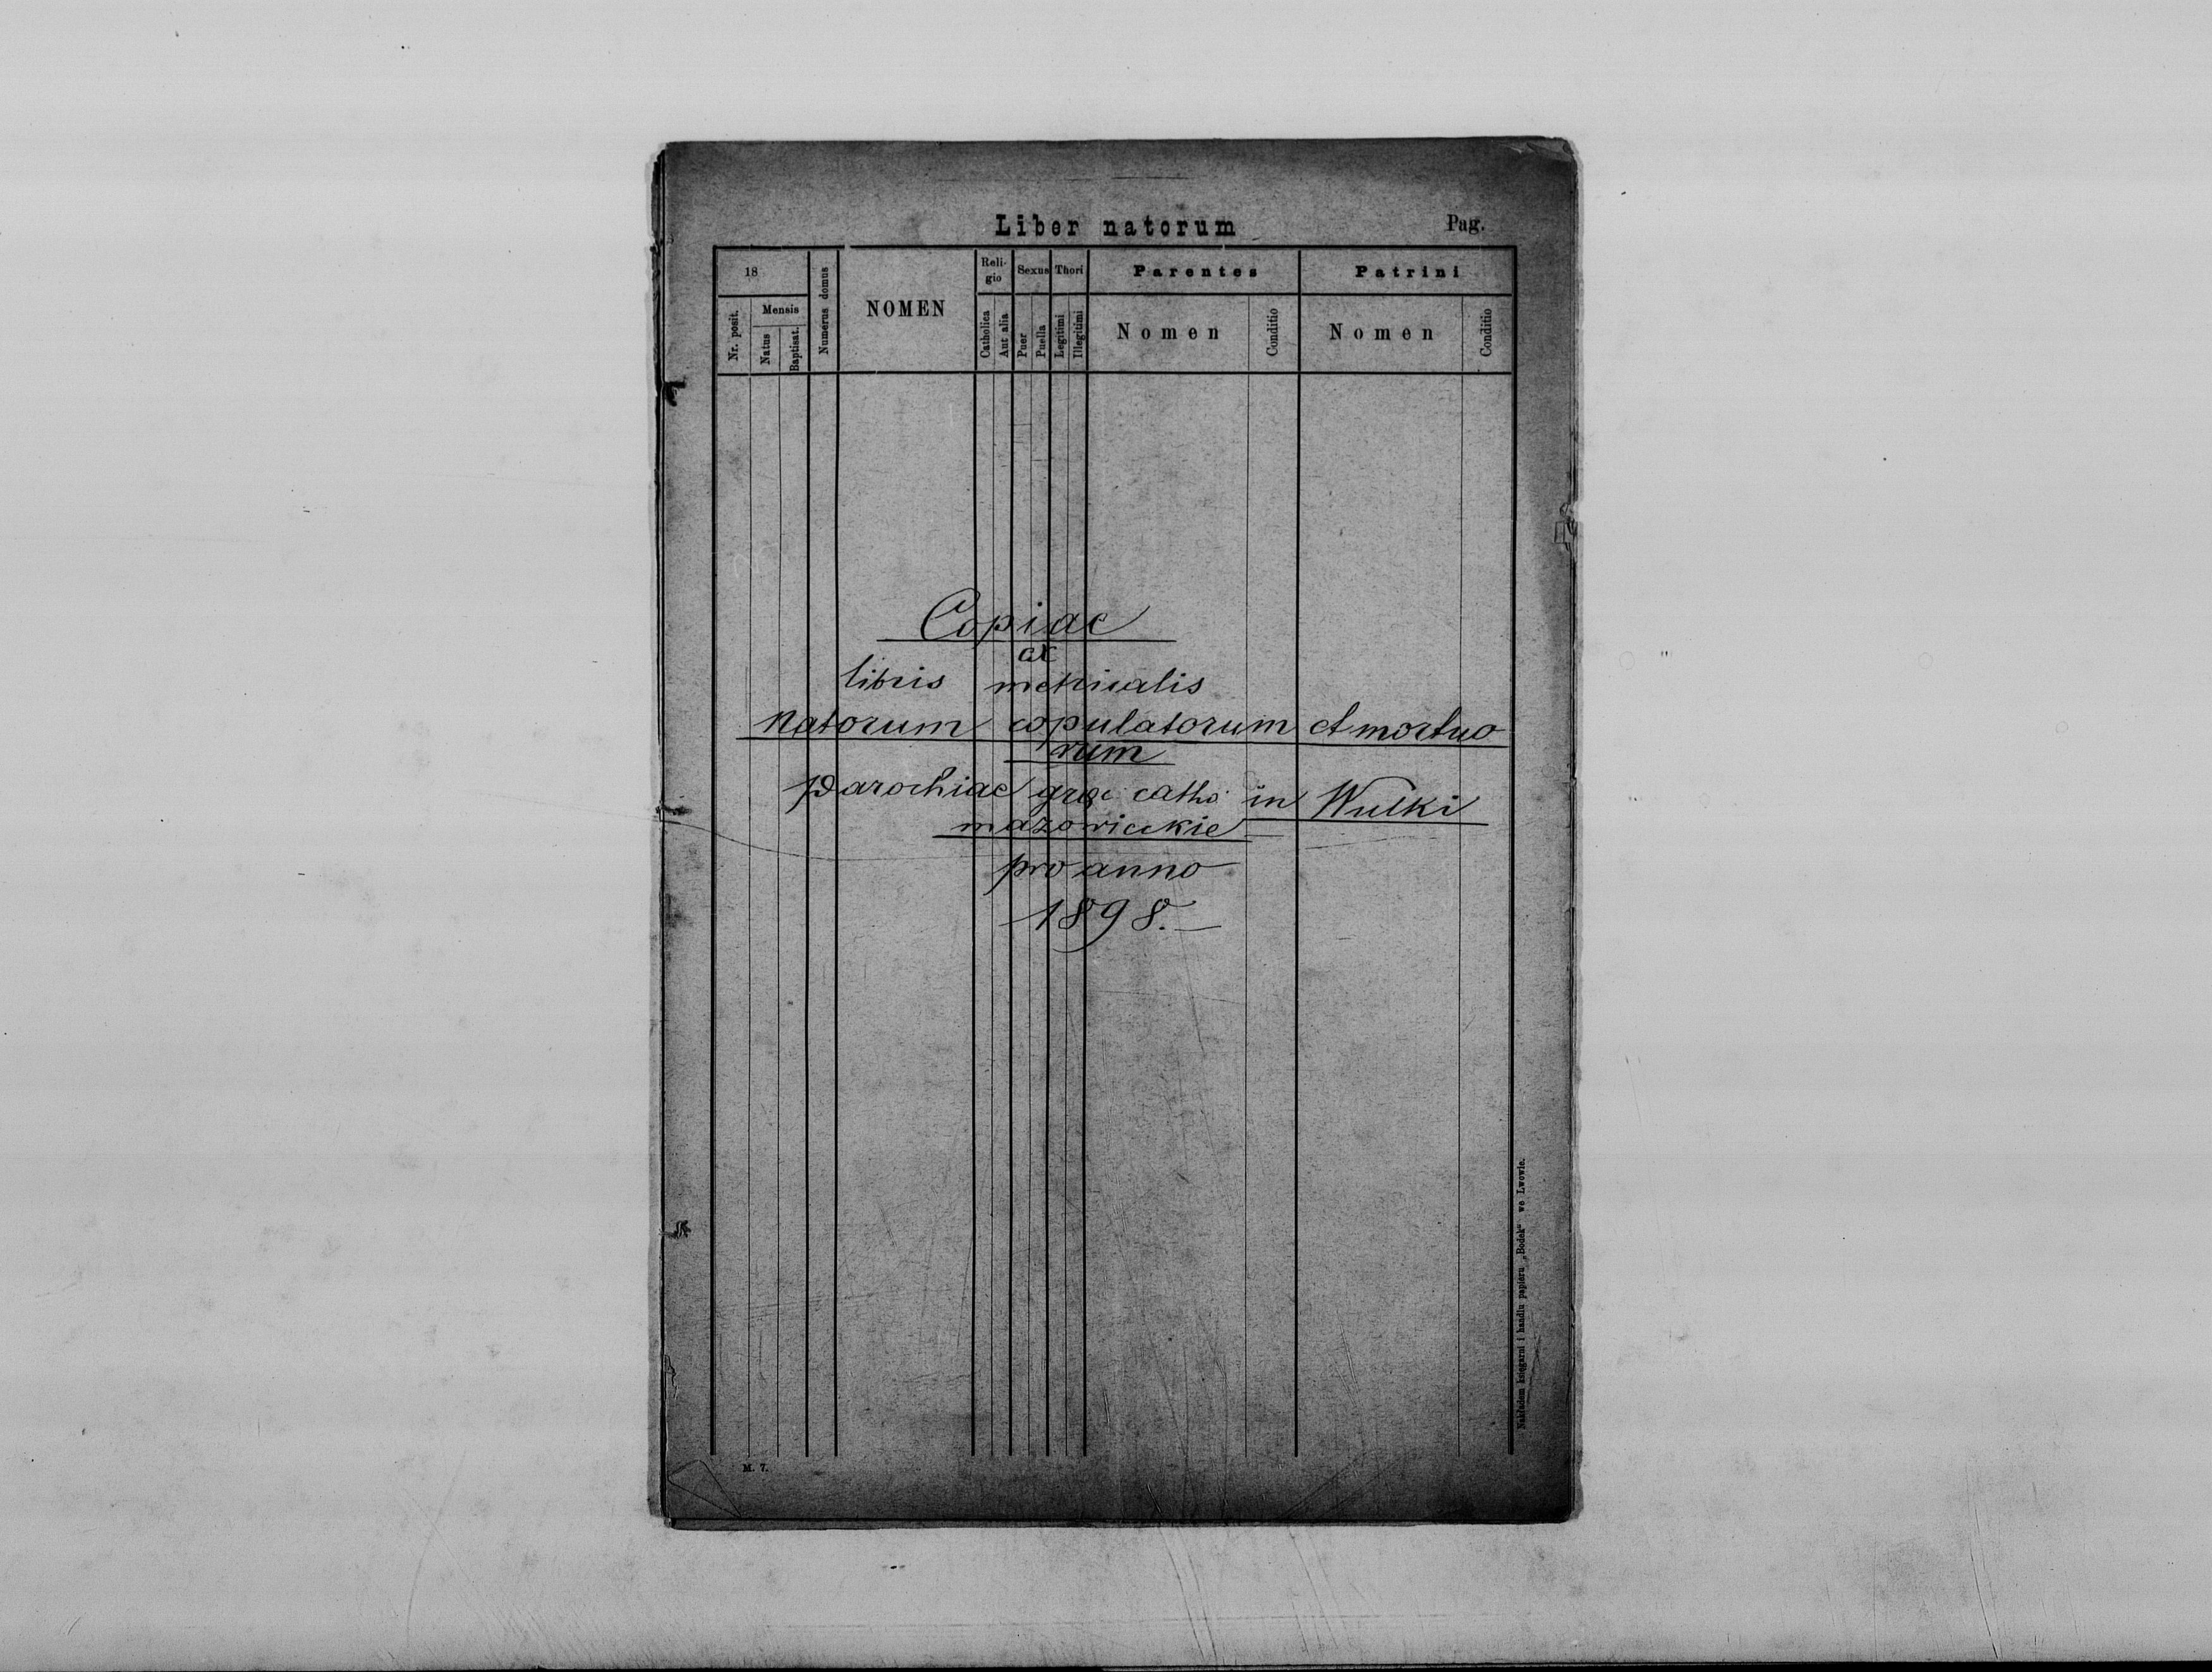 Liber natorum
Pag.
18
Nr. posit.
Mensis
Natus
Baptisat.
Numerus domus
NOMEN
Reli-
gio
Catholica
Aut alia
Sexus
Puer
Puella
Thori
Legitimi
Illegitimi
Parentes
Nomen
Conditio
Patrini
Nomen
Conditio
Copiae
ex
libris metricalis
Natorum copulatorum et mortuo
rum
Parochiae grae catho in Wulki
mazowieckie
pro anno
1898.
Nakładem księgarni i handlu papieru „Bodek“ we Lwowie.
M. 7.